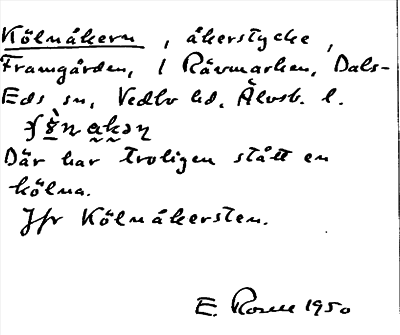 Kölnåkern, åkerstycke,
Framgården, i Rävmarken, Dals-
Eds sn, Vedbo hd, Älvsb. l.
Där har troligen stått en
kölna.
Jfr Kölnåkersten.
E. Rosell 1950